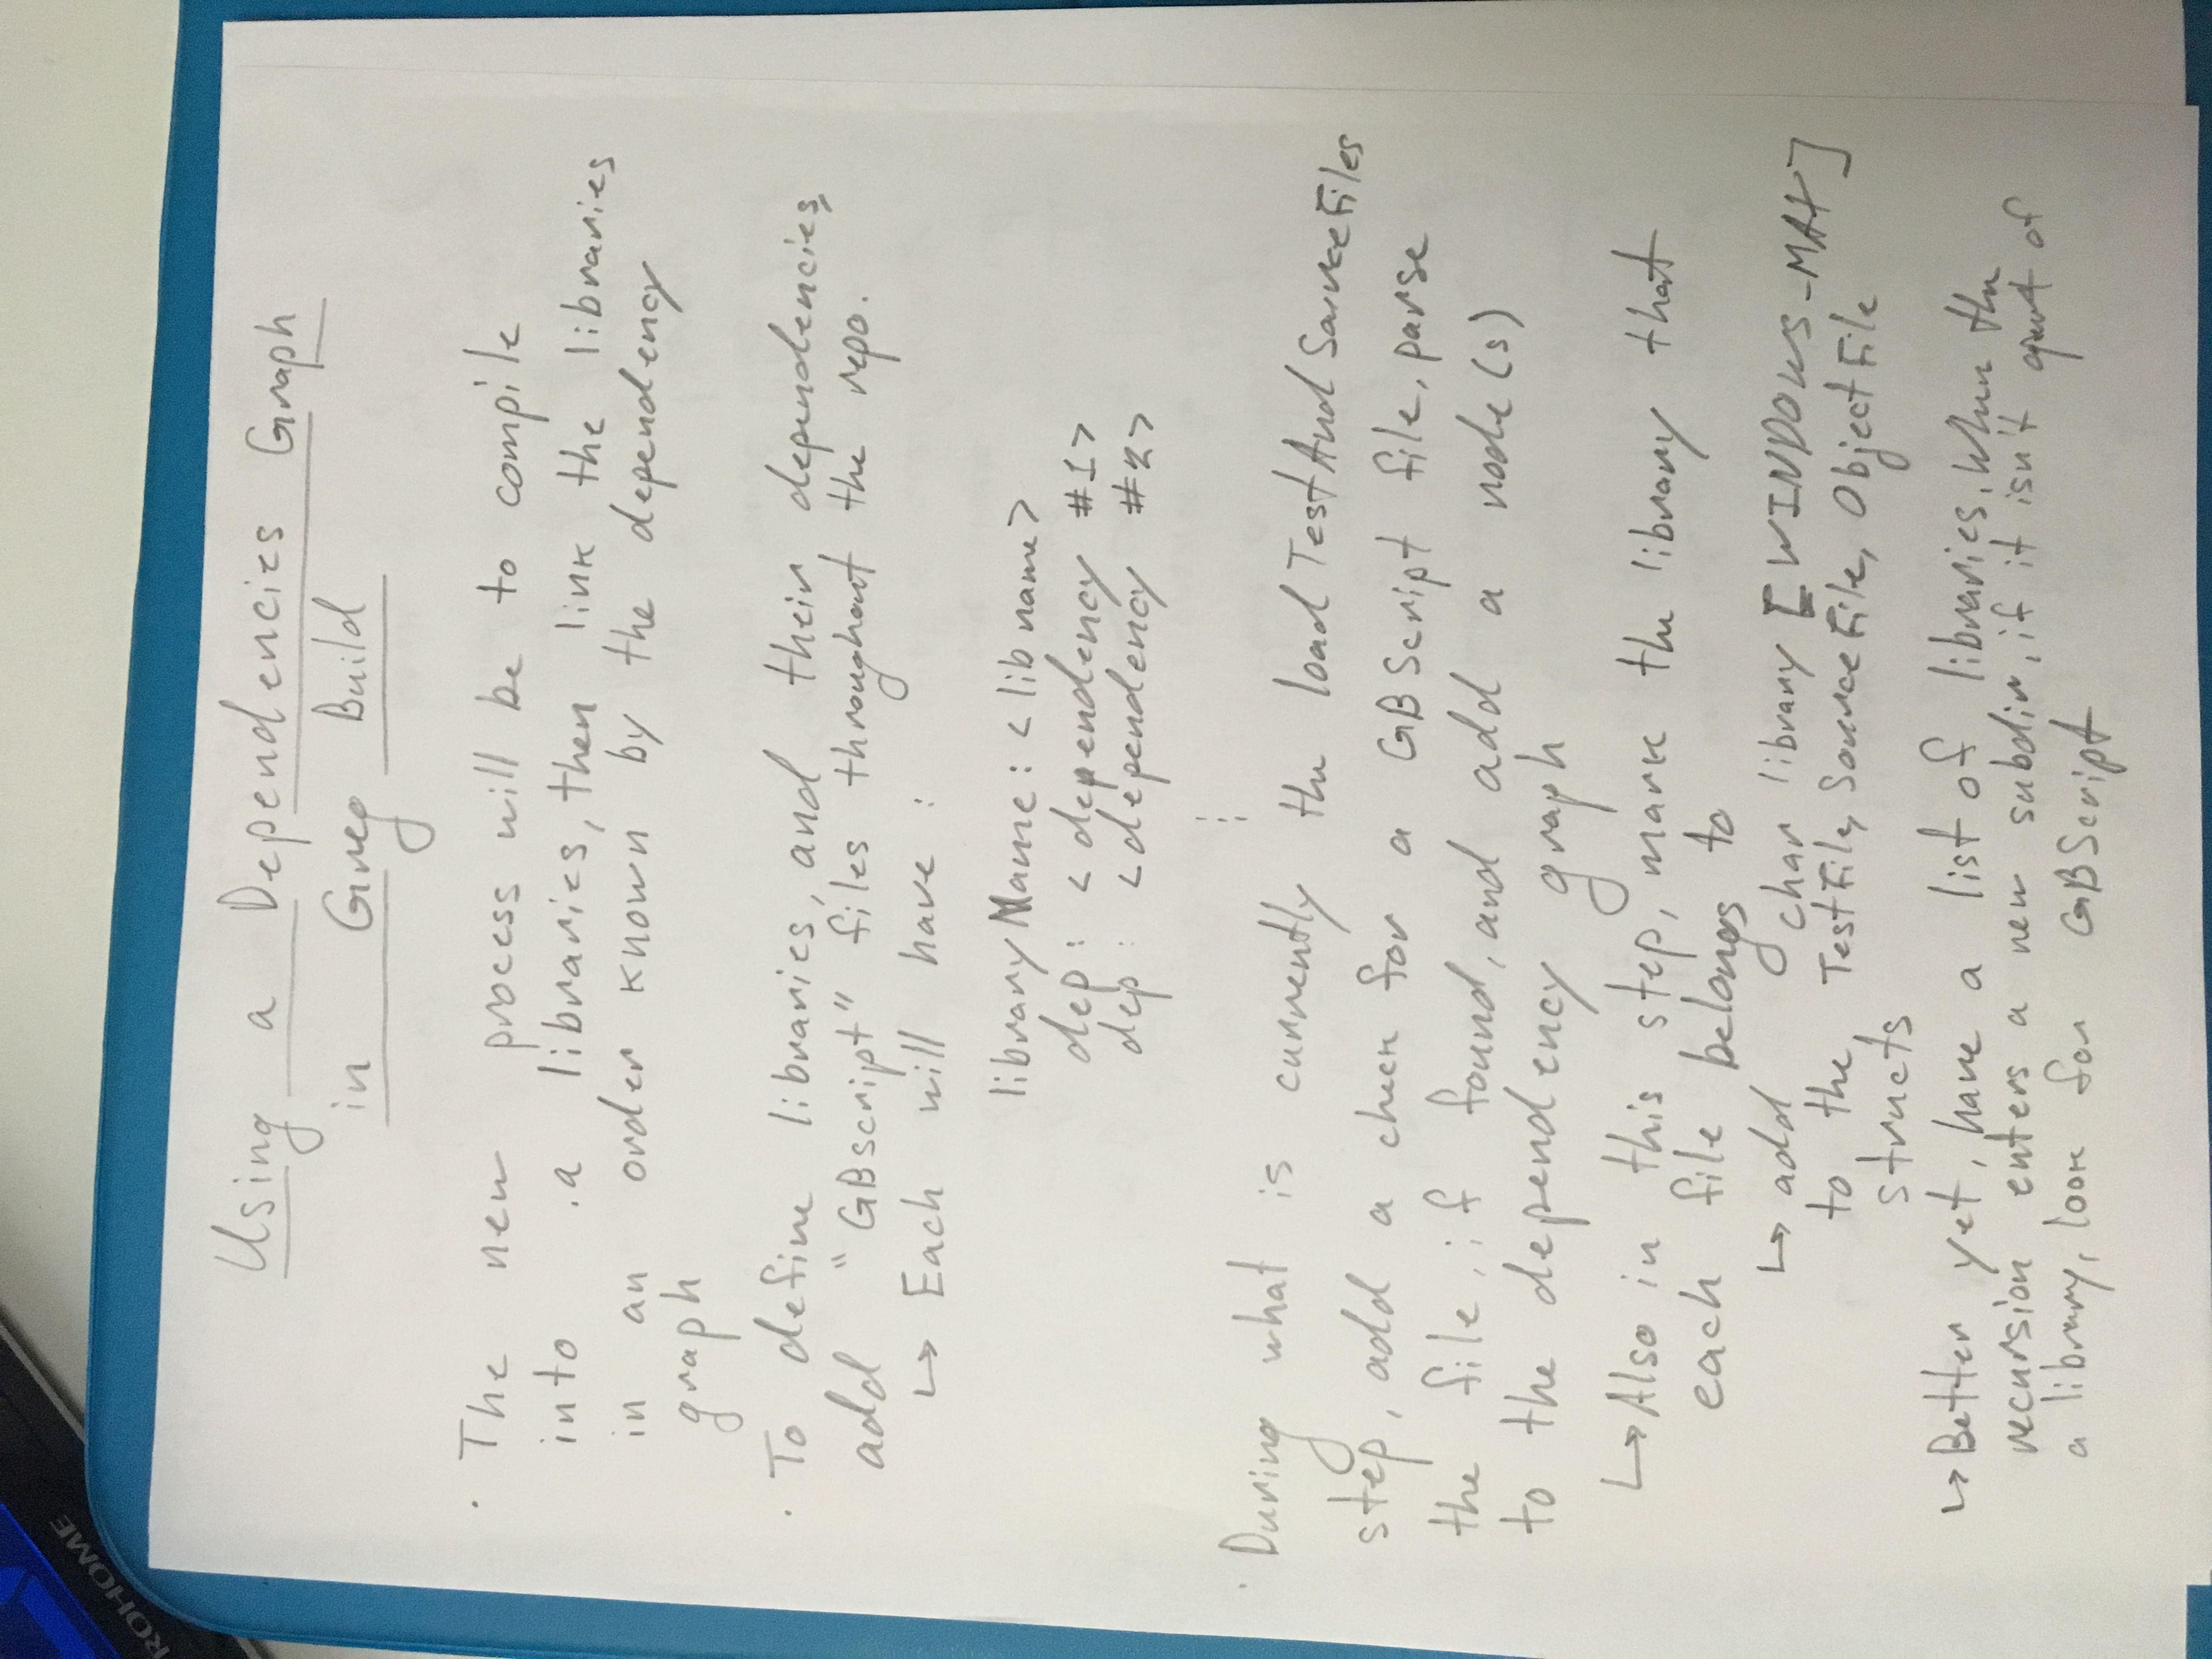 ROHOME
Using a Dependencies Graph
in Greg Build
· The new process will be to compile
into .a libraries, then link the libraries
in an order known by the dependency
graph
· To define libraries, and their dependencies,
add "GBscript" files throughout the repo.
↳ Each will have :
libraryName: <lib name>
dep: <dependency #1>
dep: <dependency #2>
⋮
· During what is currently the loadTestAndSourceFiles
step, add a check for a GBScript file, parse
the file, if found, and add a node(s)
to the dependency graph
↳ Also in this step, mark the library that
each file belongs to
↳ add char library [WINDOWS_MAX]
to the TestFile, SourceFile, ObjectFile
structs
↳ Better yet, have a list of libraries. When the
recursion enters a new subdir, if it isn't apart of
a library, look for GBScript